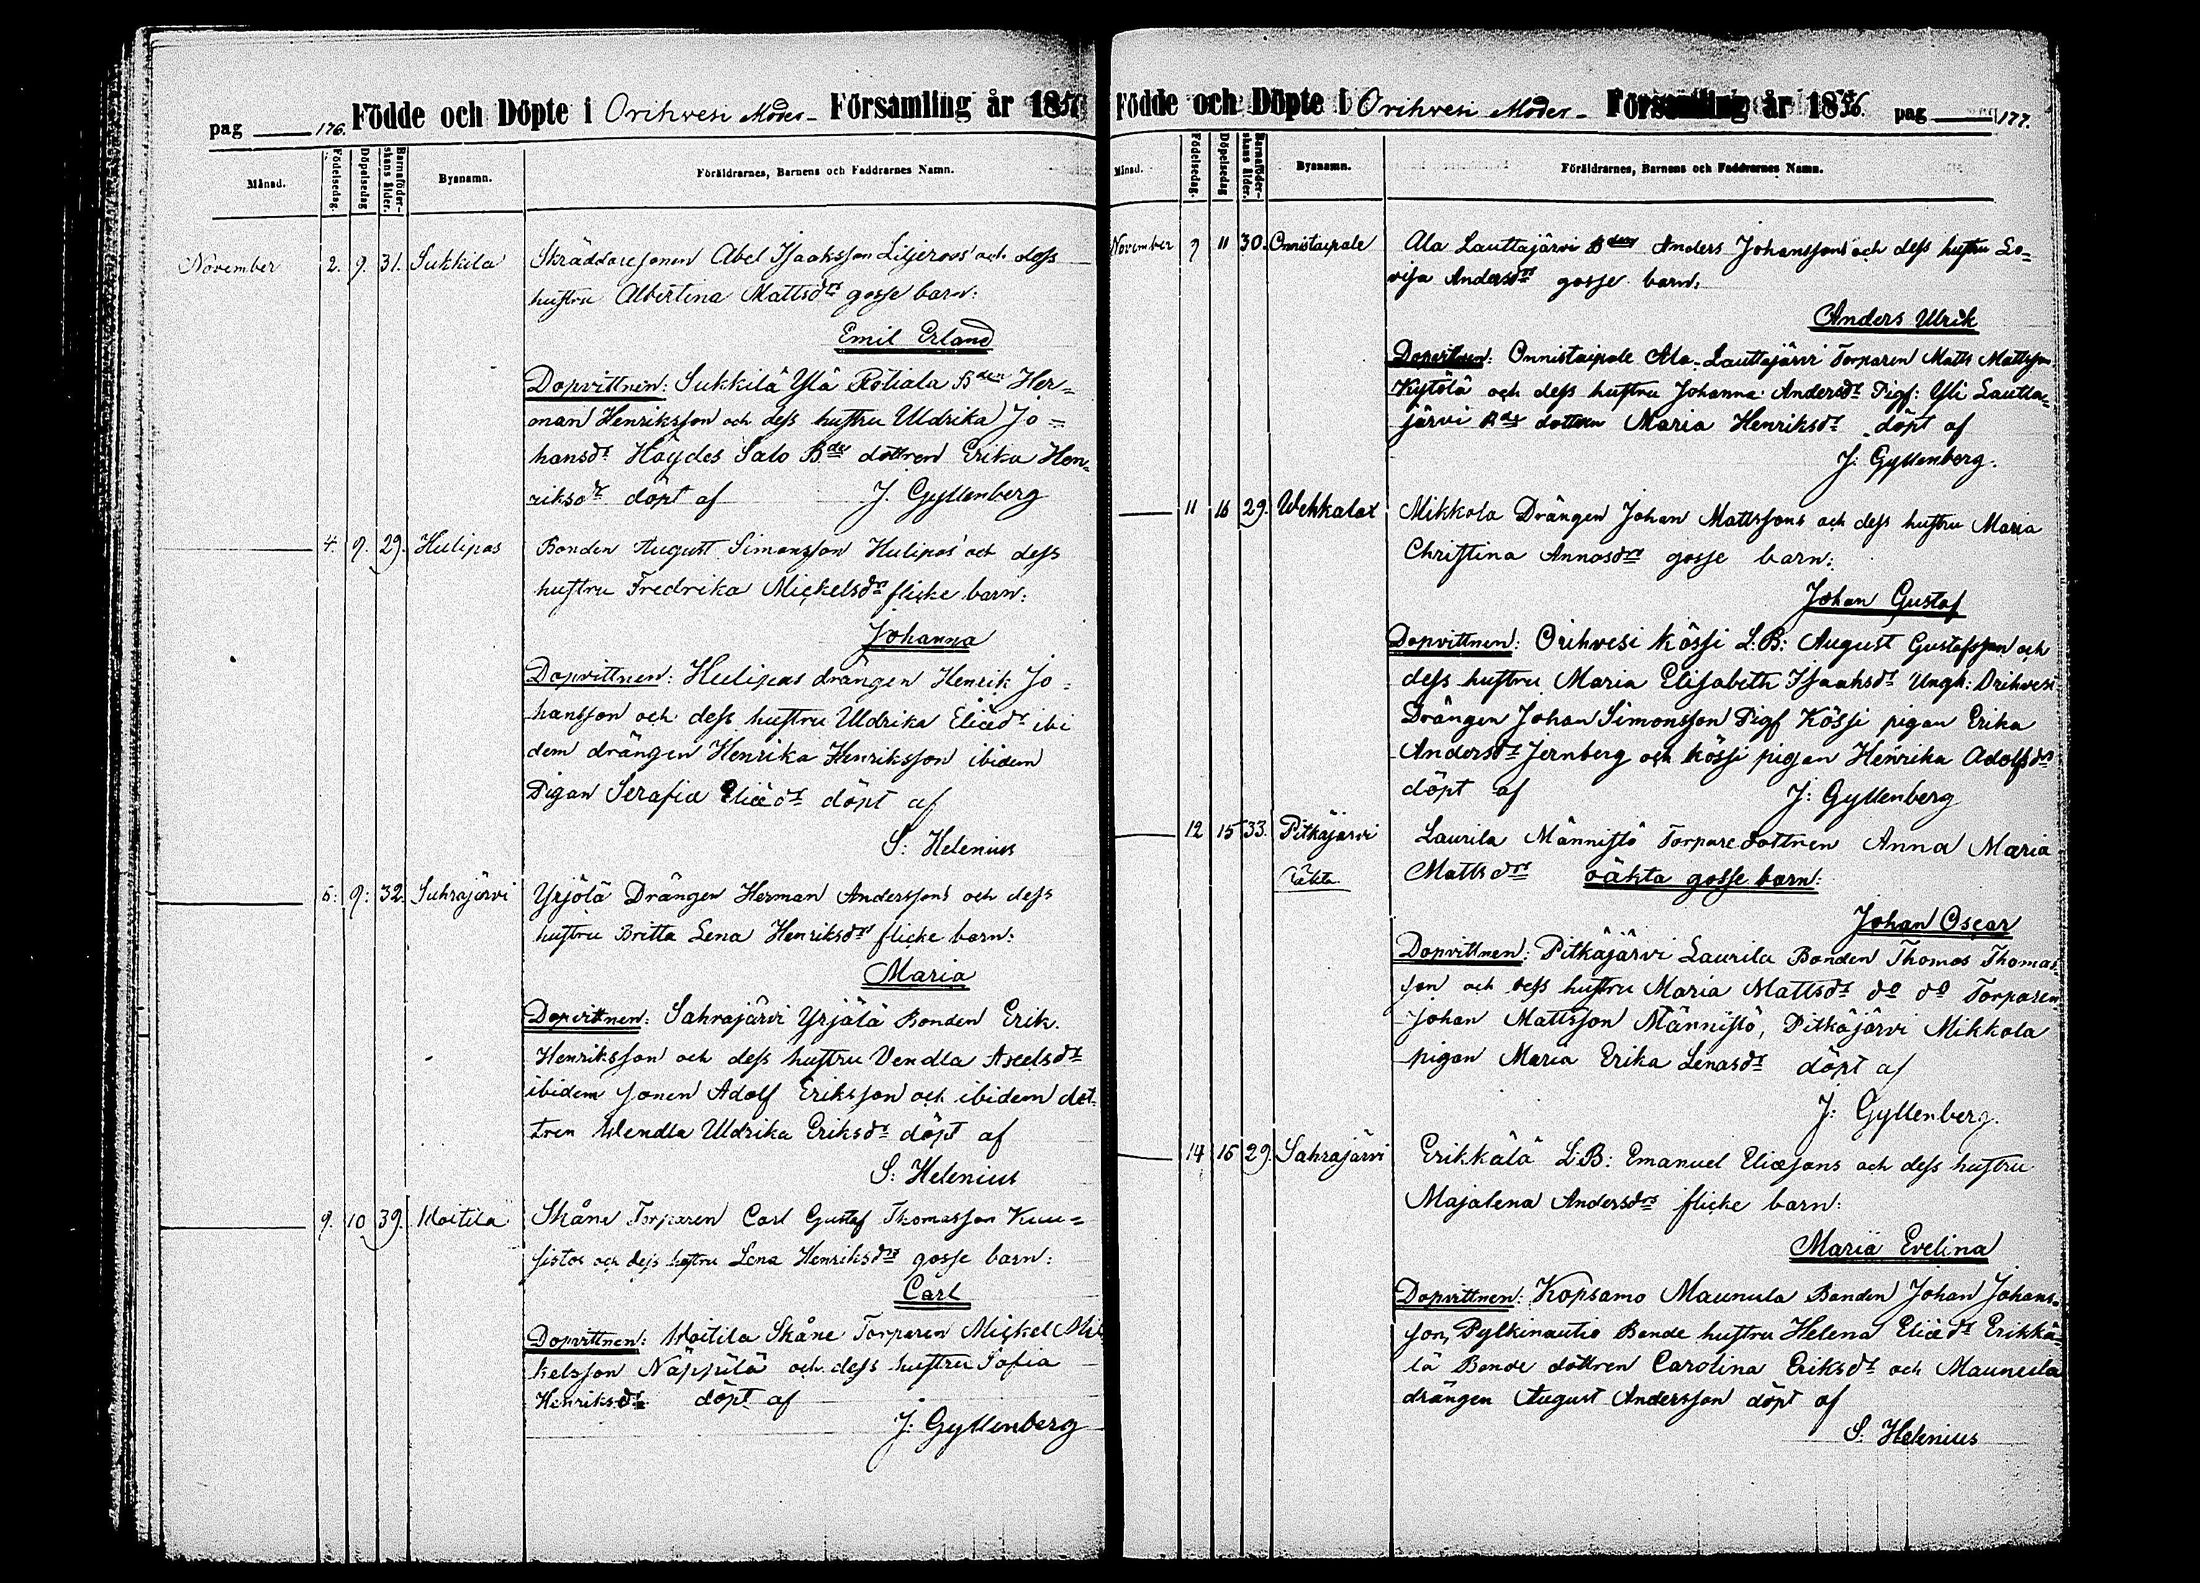 pag 176. Födde och Döpte i Orihvesi Moder- Församling år 1856
Månad. Födelsedag. Döpelsedag Barnaföderskans ålder. Bysnamn. Föräldrarnes, Barnens och Faddrarnes Namn.
November 2. 9. 31. Sukkila Skräddaresonen Abel Isaaksson Liljeroos' och dess
hustru Albertina Mattsdrs gosse barn:
Emil Erland
Dopvittnen: Sukkilä Ylä Rötiala Bden Her=
man Henriksson och dess hustru Uldrika Jo=
hansdr Haydes Salo Bde dottren Erika Hen
riksdr döpt af J. Gyllenberg
4. 9. 29. Hulipas Bonden August Simonsson Hulipas' och dess
hustru Fredrika Mickelsdrs flicke barn:
Johanna
Dopvittnen: Hulipas drängen Henrik Jo=
hansson och dess hustru Uldrika Eliædr ibi
dem drängen Henrika Henriksson ibidem
Pigan Serafia Eliædr döpt af
S: Helenius
5: 9: 32. Sahrajärvi Yrjölä Drängen Herman Anderssons och dess
hustru Britta Lena Henriksdrs flicke barn:
Maria
Dopvittnen: Sahrajärvi Yrjälä Bonden Erik
Henriksson och dess hustru Vendla Axelsdr
ibidem sonen Adolf Eriksson och ibidem dot
tren Wendla Uldrika Eriksdr döpt af
S: Helenius
9. 10 39. Woitila Skåne Torparen Carl Gustaf Thomasson Kuu=
sistos och dess hustru Lena Henriksdrs gosse barn:
Carl
Dopvittnen: Woitila Skåne Torparen Mickel Mic
kelsson Näppilä och dess hustru Sofia
Henriksdr döpt af
J: Gyllenberg
Födde och Döpte i Orihvesi Moder- Församling år 1856. pag 177.
Månad. Födelsedag. Döpelsedag Barnaföderskans ålder. Bysnamn. Föräldrarnes, Barnens och Faddrarnes Namn.
November 9 11 30. Onnistaipale Ala Lauttajärvi Bdens Anders Johanssons och dess hustru Lo=
visa Andersdrs gosse barn:
Anders Ulrik
Dopvittnen: Onnistaipale Ala-Lauttajärvi Torparen Matts Mattsson
Kytölä och dess hustru Johanna Andersdr Pigf: Yli Lautta=
järvi Bde dottren Maria Henriksdr döpt af
J: Gyllenberg.
11 16 29. Wehkalax Mikkola Drängen Johan Mattssons och dess hustru Maria
Christina Annasdrs gosse barn:
Johan Gustaf
Dopvittnen: Orihvesi Kössi L:B: August Gustafsson och
dess hustru Maria Elisabeth Isaaksdr Ungk: Orihvesi
Drängen Johan Simonsson Pigf Kössi pigan Erika
Andersdr Jernberg och Kössi pigan Henrika Adolfsdr
döpt af J: Gyllenberg
12 15 33. Pitkäjärvi Laurila Männistö Torpare dottren Anna Maria
Oäkta Mattsdrs oäkta gosse barn:
Johan Oscar
Dopvittnen: Pitkäjärvi Laurila Bonden Thomas Thomas
son och dess hustru Maria Mattsdr do do Torparen
Johan Mattsson Männistö, Pitkäjärvi Mikkola
pigan Maria Erika Lenasdr döpt af
J: Gyllenberg.
14 16 29. Sahrajärvi Erikkälä L:B: Emanuel Eliæsons och dess hustru
Majalena Andersdrs flicke barn:
Maria Evelina
Dopvittnen: Kopsamo Maunula Bonden Johan Johans=
son, Pylkinautio Bonde hustru Helena Eliædr Erikkä=
lä Bonde dottren Carolina Eriksdr och Maunula
drängen August Andersson döpt af
S. Helenius